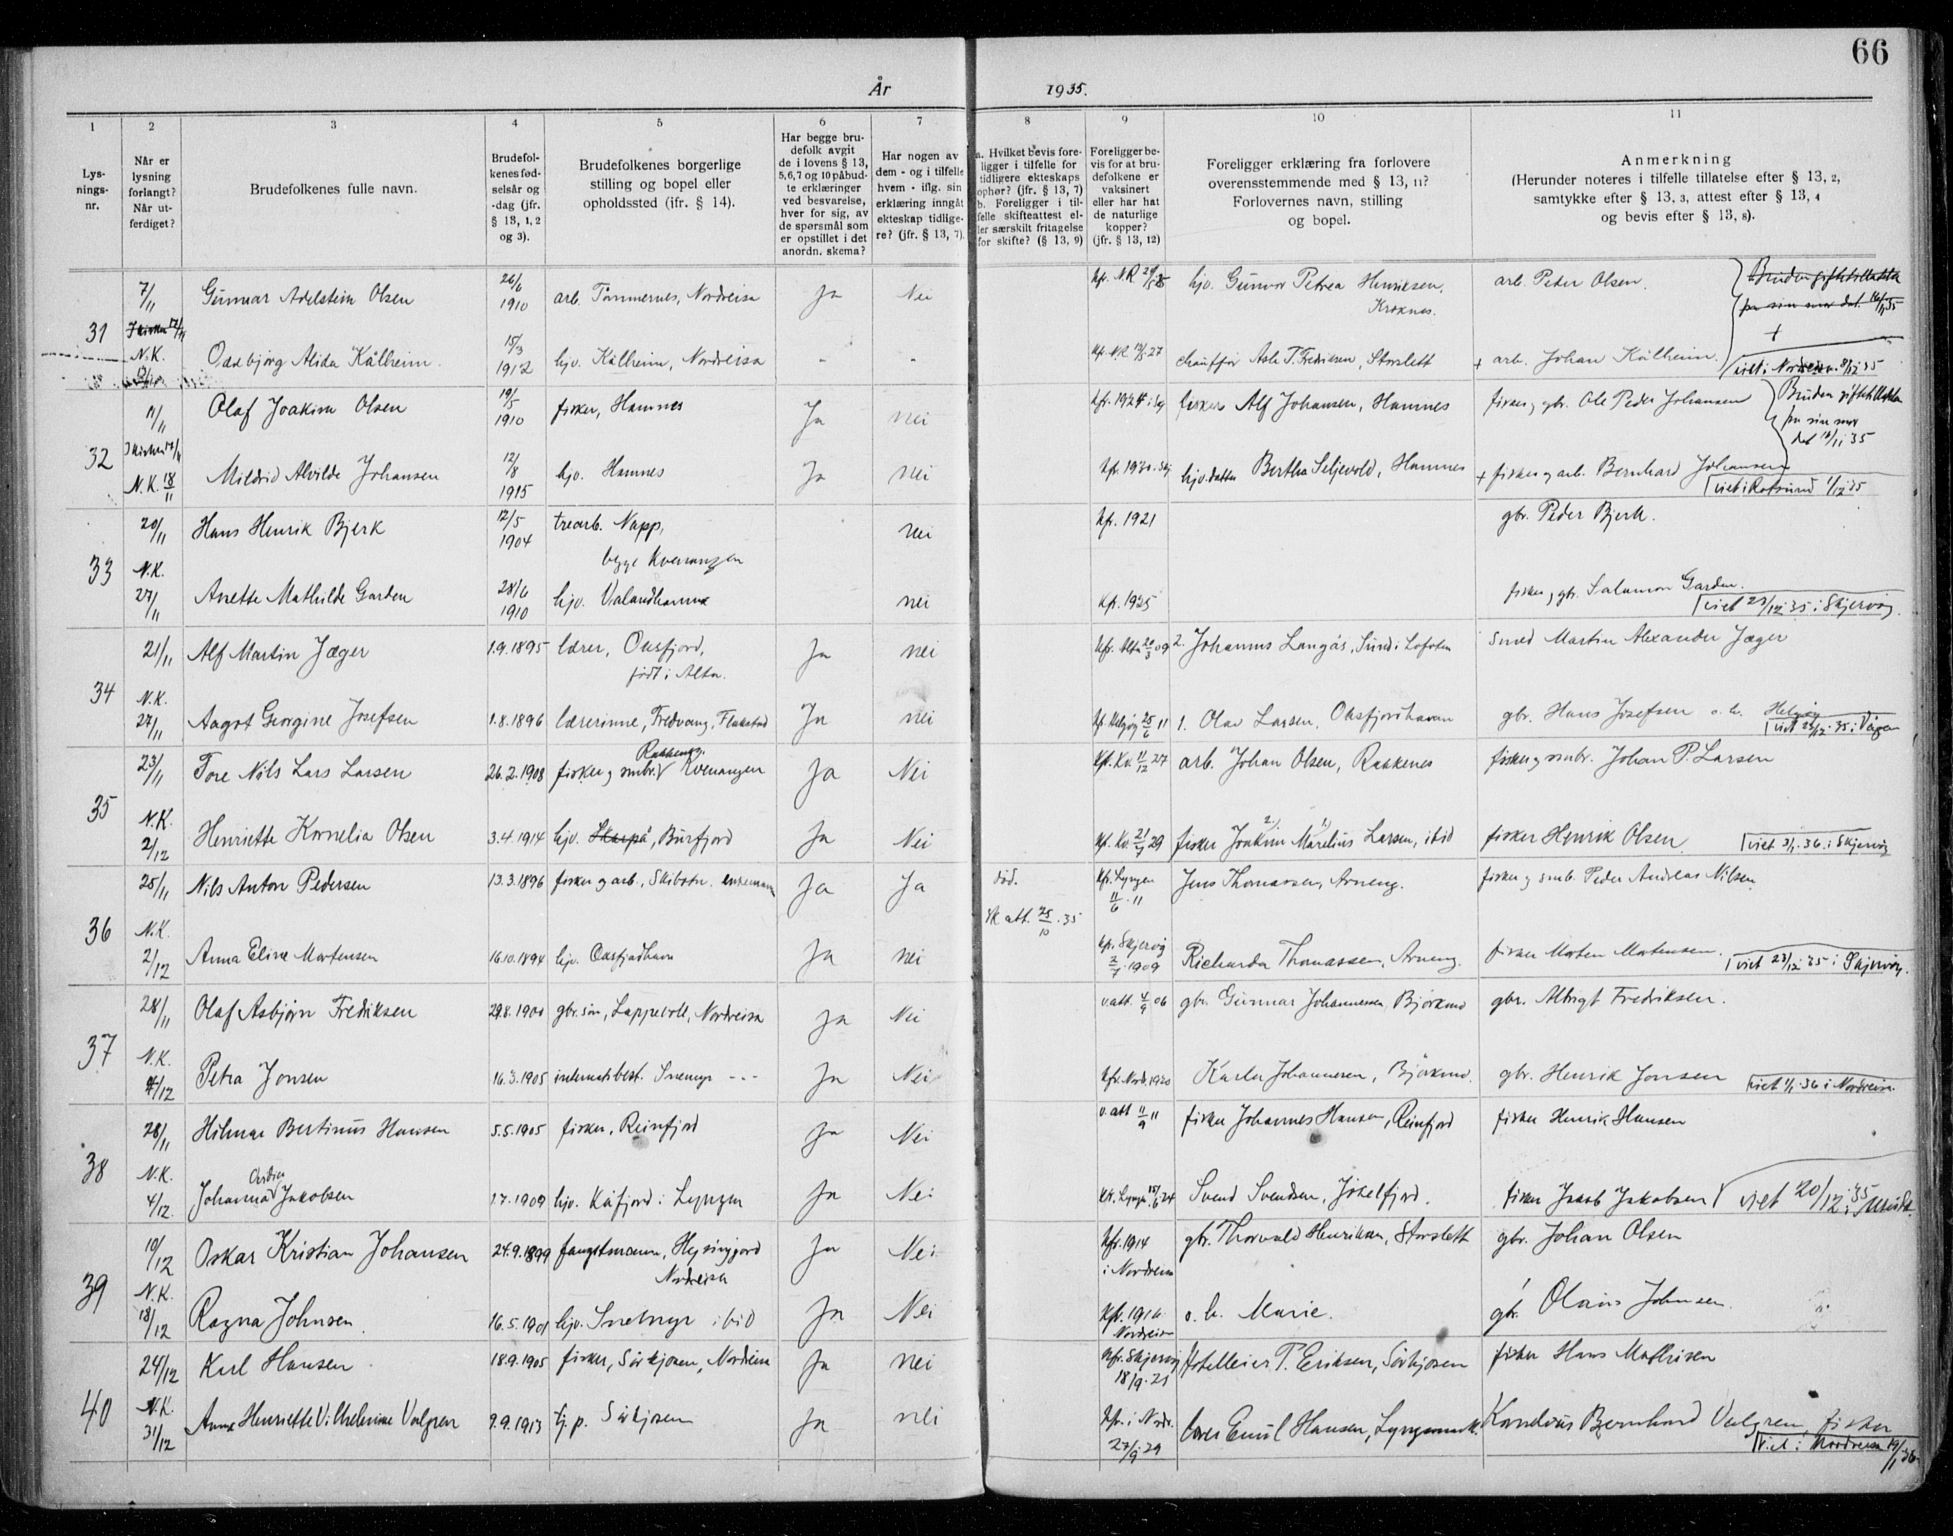 66
År 1935.
1 2 3 4 5 6 7 8 9 10 11
Lys-
nings-
nr.
Når er
lysning
forlangt?
Når ut-
ferdiget?
Brudefolkenes fulle navn.
Brudefol-
kenes fød-
selsår og
-dag (jfr.
§ 13, 1, 2
og 3).
Brudefolkenes borgerlige
stilling og bopel eller
opholdssted (jfr. § 14).
Har begge bru-
defolk avgit
de i lovens § 13,
5,6,7 og 10 påbud-
te erklæringer
ved besvarelse,
hver for sig, av
de spørsmål som
er opstillet i det
anordn. skema?
Har nogen av
dem - og i tilfelle
hvem - iflg. sin
erklæring inngåt
ekteskap tidlige-
re? (jfr. § 13, 7).
a. Hvilket bevis fore-
ligger i tilfelle for
tidligere ekteskaps
ophør? (jfr. § 13, 7)
b. Foreligger i til-
felle skifteattest el-
ler særskilt fritagelse
for skifte? (§ 13, 9)
Foreligger be-
vis for at bru-
defolkene er
vaksinert
eller har hat
de naturlige
kopper?
(jfr. § 13, 12)
Foreligger erklæring fra forlovere
overensstemmende med § 13, 11?
Forlovernes navn, stilling
og bopel.
Anmerkning
(Herunder noteres i tilfelle tillatelse efter § 13, 2,
samtykke efter § 13, 3, attest efter § 13, 4
og bevis efter § 13, 8).
31 7/11 Gunnar Adelstein Olsen 26/6 1910 arb. Tømmernes, Nordreisa Ja Nei hjv. Gunvor Petrea Henriksen, Kroknes. arb. Peder Olsen.
N.K. Oddbjörg Alida Kålheim 15/3 1912 hjv. Kålheim, Nordreisa - - chauffør Asle T. Fredriksen, Storslett + arb. Johan Kålheim. viet i Nordreisa
32 11/11 Olaf Joakim Olsen 19/5 1910 fisker, Hamnes Ja nei kfr. 1924 i Skj fisker Alf Johansen, Hamnes fisker og gbr. Ole Peder Johansen Bruden giftetillatelse fra sin mor dat.
N.K. 18/11 Mildrid Alvilde Johansen 12/8 1915 hjv. Hamnes Ja nei kfr. 1930. Skj hjv. datter Bertha Seljevold, Hamnes + fisker og arb. Bernhard Johansen viet i Rotsund 1/12 35
33 20/11 Hans Henrik Bjerk 12/5 1904 trearb. Napp, nei kfr. 1921 gbr. Peder Bjerk.
begge Kvenangen
N.K. 27/11 Anette Mathilde Garden 28/6 1910 hjv. Valandhamn nei kfr. 1925 fisker og gbr. Salamon Garden. viet 23/12 35 i Skjervøy.
34 21/11 Alf Martin Jæger 1.9.1895 lærer, Oksfjord, født i Alta. Ja nei kfr. Alta 20/3 09 2. Johannes Langås, Sund i Lofoten smed Martin Alexander Jæger
N.K. 27/11 Aagot Georgine Josefsen 1.8.1896 lærerinne, Fredvang, Flakstad Ja nei 25/6 11 1. Olav Larsen, Oksfjordhavn gbr. Hans Josefsen o. h. viet 35 i Vågan
35 23/11 Tore Nils Lars Larsen 26.2.1908 fisker og smbr. Rakkenes, Kvenangen Ja Nei kfr. Kv. 11/12 27 arb. Johan Olsen, Rakkenes fisker og smbr. Johan P. Larsen
N.K. 2/12 Henriette Kornelia Olsen 3.4.1914 hjv. Skarpå, Burfjord Ja Nei kfr. Kv. 21/7 29 fisker Joakim Marelius Larsen, ibid fisker Henrik Olsen viet 3/1. 36. i Skjervøy
36 25/11 Nils Anton Pedersen 13.3.1896 fisker og arb., Skibotn. enkemann Ja Ja död. kfr. Lyngen 11/6 11 Jens Thomassen, Arneng. fisker og smb. Peder Andreas Nilsen
sk att. 25/10. 35
N.K. 2/12 Anna Eline Mortensen 16.10.1894 hjv. Oksfjordhavn Ja nei kfr. Skjervøy 1909 Richarda Thomassen, Arneng. fisker Morten Mortensen. viet 23/12 35 i Skjervøy.
37 28/11 Olaf Asbjørn Fredriksen gbr. søn, Lappevoll, Nordreisa Ja Nei v. att. 4/9 06 gbr. Gunnar Johannessen, Bjørkmo gbr. Albrigt Fredriksen.
N.K. 4/12 Petra Jonsen 16.3.1905 internatsbest. Snemyr --- Ja Nei kfr. Nord. 1920 Karla Johannesen, Björkmo. gbr. Henrik Jonsen viet 1/1. 36 i Nordreisa.
38 28/11 Hilmar Bertinus Hansen 5.5.1905 fisker, Reinfjord Ja Nei v. att 11/9 11 fisker Johannes Hansen, Reinfjord fisker Henrik Hansen
N.K. 4/12 Johanna Jakobsen 1.7.1909 hjv. Kåfjord i Lyngen Ja Nei kfr. Lyngen 24 Svend Svendsen, Jökelfjord. fisker Jakob Jakobsen viet 20/12 35
39 10/12 Oskar Kristian Johansen 24.9.1899 fangstmann, Nordreisa Ja Nei kfr. 1914 i Nordreisa gbr. Thorvald Henriksen, Storslett gbr. Johan Olsen
N.K. 18/12 Ragna Johnsen. 16.5.1901 hjv. Snemyr ibid Ja Nei kfr. 1916 Nordreisa o. h. Marie. gbr. Olaus Johnsen.
40 24/12 Karl Hansen 18.9.1905 fisker, Sörkjosen, Nordreisa Ja nei kfr. Skjervøy 18/9. 21 Hotelleier T. Eriksen, Sörkjosen fisker Hans Mathisen
N.K. 31/12 Anna Henriette Vilhelmine Valgren 9.9.1913 tj. p. Sörkjosen Ja nei kfr. i Nordr. 27/9 29 lærer Emil Hansen, Kornelius Bernhard Valgren, fisker
viet i Nordreisa 19/1 36